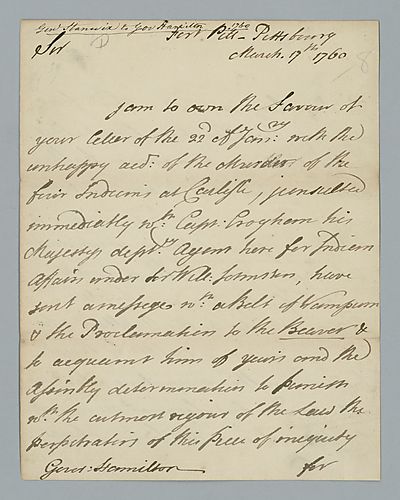 Genl Stanwix to Govr Hamilton 1760
Fort Pitt - Pittsbourg
Sir
March 17th 1760
I am to own the Favour of
your letter of the 22d of Jany: with the
unhappy acct: of the Murder of the
four Indians at Carlisle, I consulted
immediately wth Capt: Croghorn his
Majestys depty: Agent here for Indien
Affairs under Sr Will: Johnston, have
sent a message wth a Belt of Wampum
& the Proclamation to the Beaver &
to acquaint him of yours and the
Assembly determination to punish
wth the outmost rigour of the Law the
perpetrators of this piece of iniquity
Govr: Hamilton
for